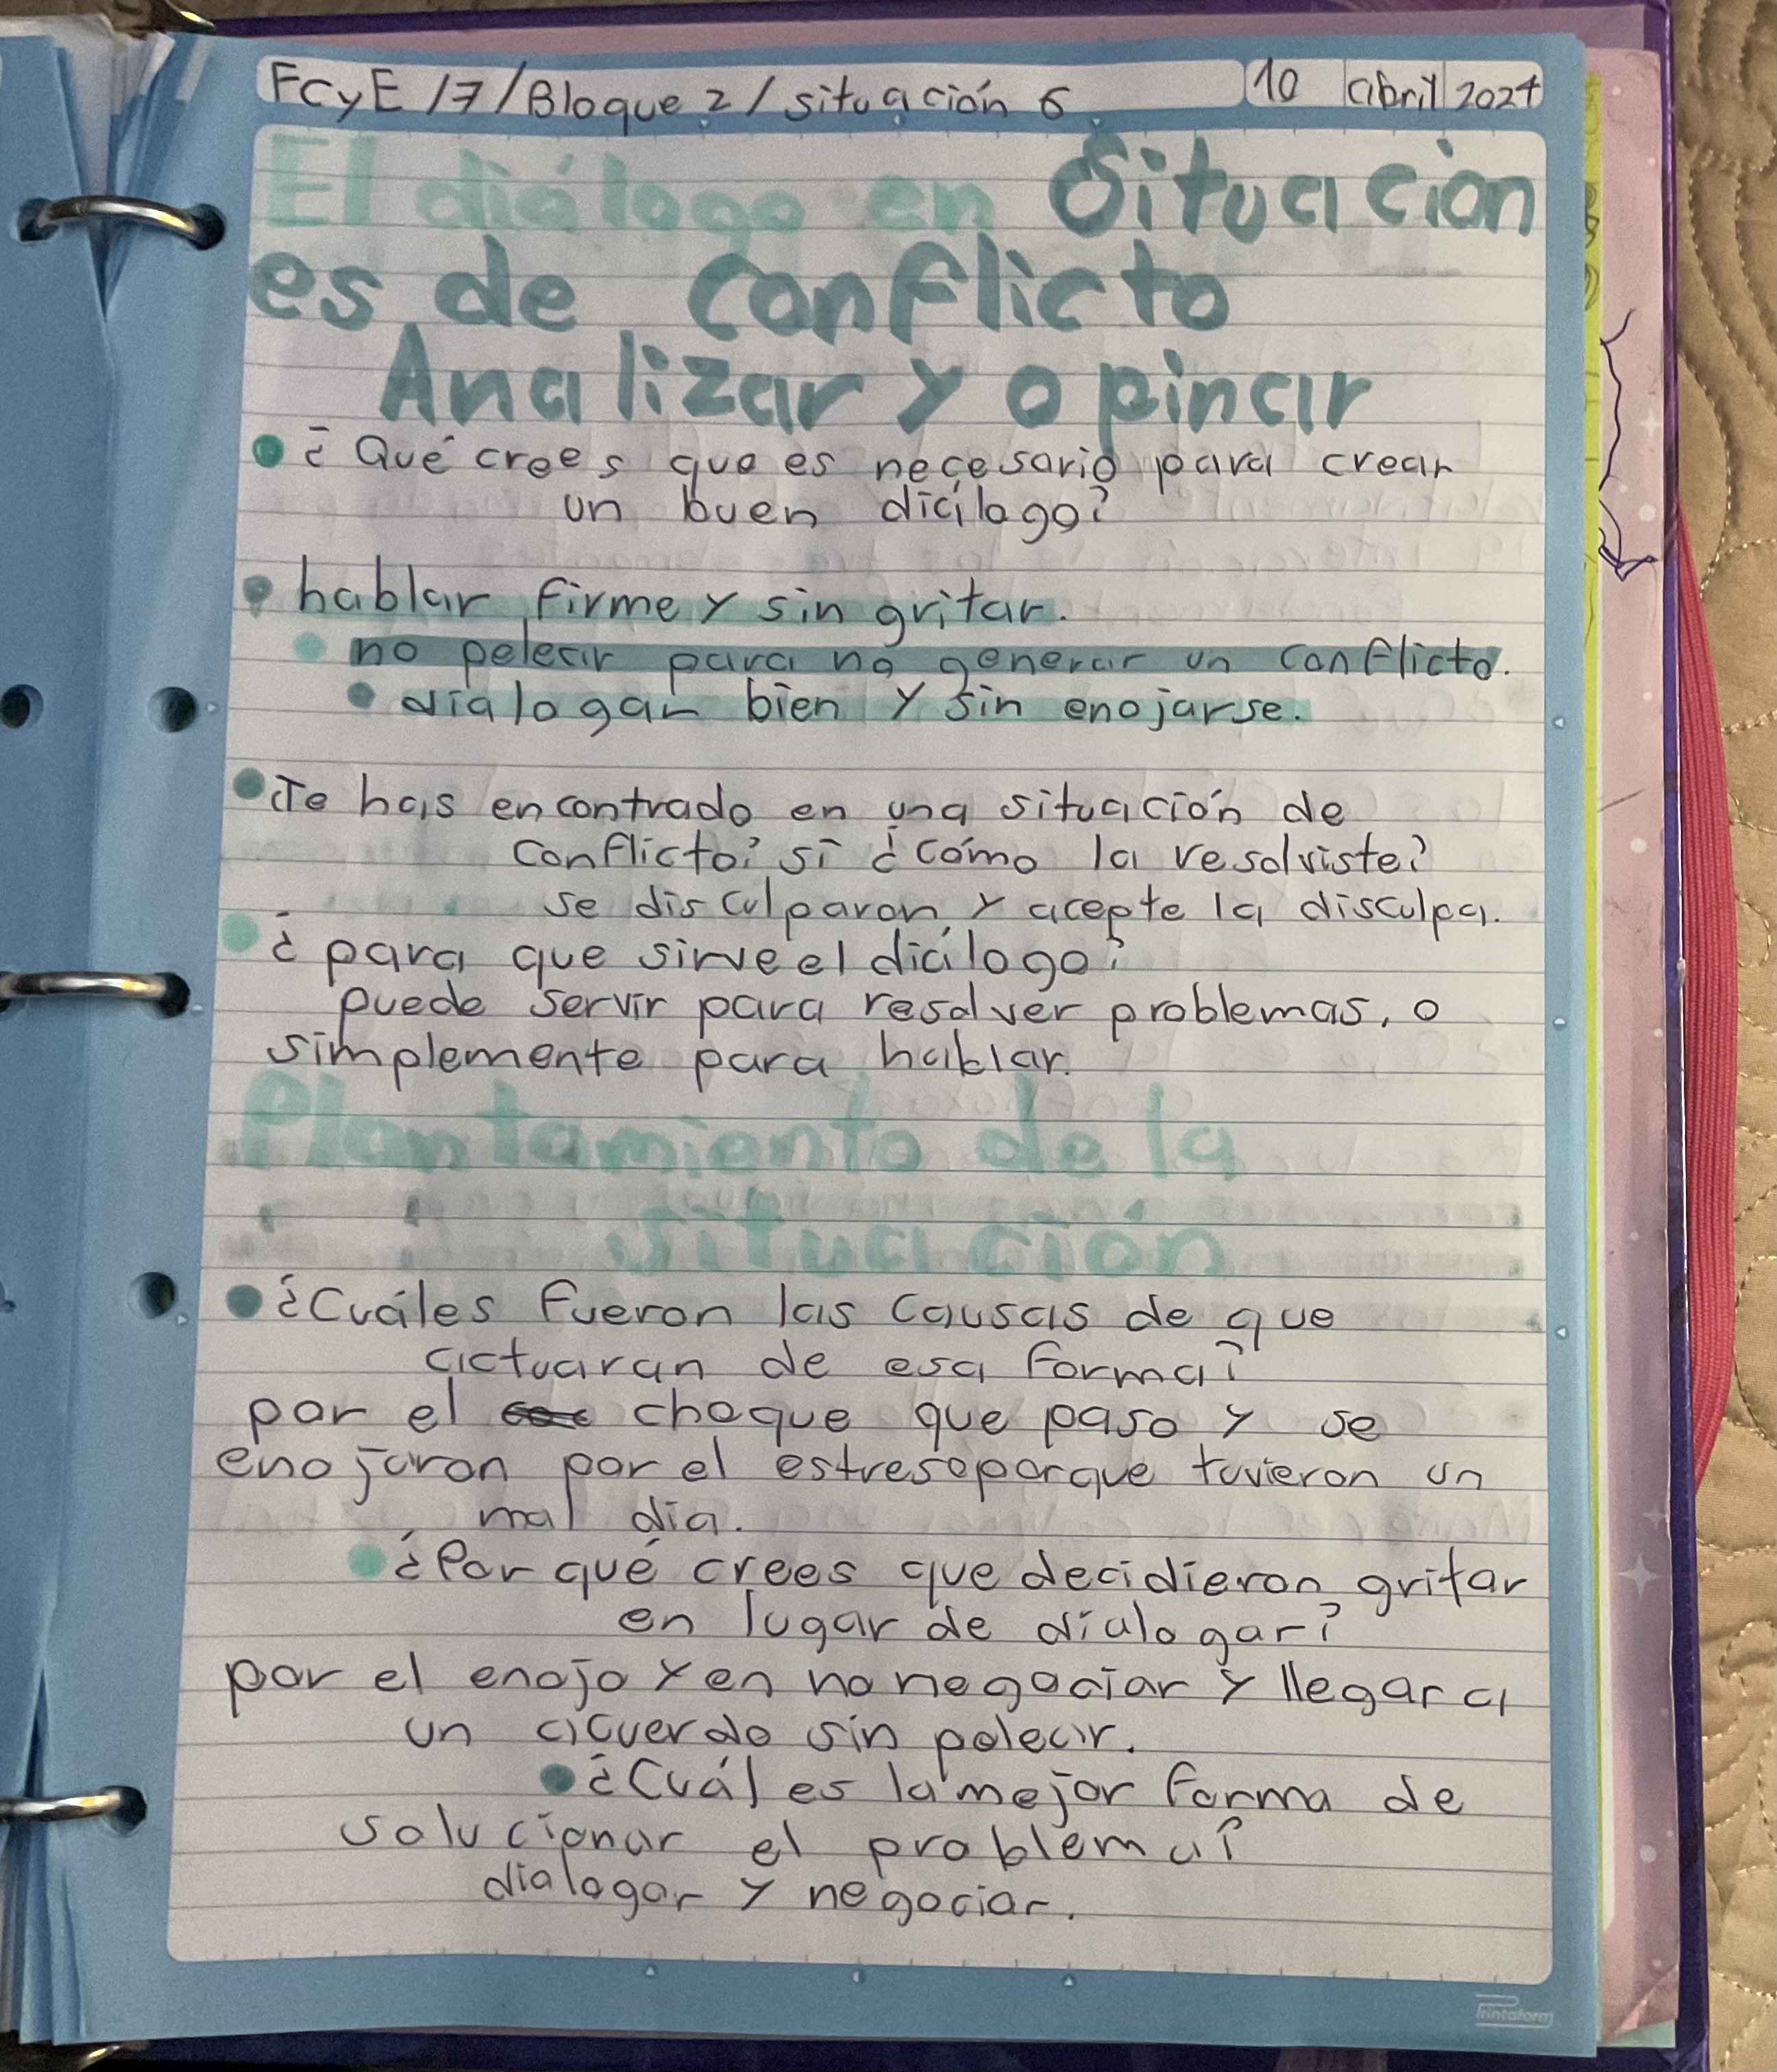 FCyE 17/Bloque 2/situación 6 10 abril 2024
El diálogo en Situacion
es de conflicto
Analizar y opinar
¿Qué crees que es necesario para crear
un buen diálogo?
hablar firme y sin gritar.
no pelear para no generar un conflicto.
dialogar bien y sin enojarse.
¿Te has encontrado en una situación de
conflicto? si ¿cómo la resolviste?
se disculparon y acepte la disculpa.
¿para que sirve el diálogo?
puede servir para resolver problemas, o
simplemente para hablar.
Plantamiento de la
situación
¿Cuáles fueron las causas de que
actuaran de esa forma?
por el choque que paso y se
enojaron por el estres o porque tuvieron un
mal dia.
¿Por qué crees que decidieron gritar
en lugar de dialogar?
por el enojo y en no negociar y llegar a
un acuerdo sin pelear.
¿Cuál es la mejor forma de
solucionar el problema?
dialogar y negociar.
Printaform